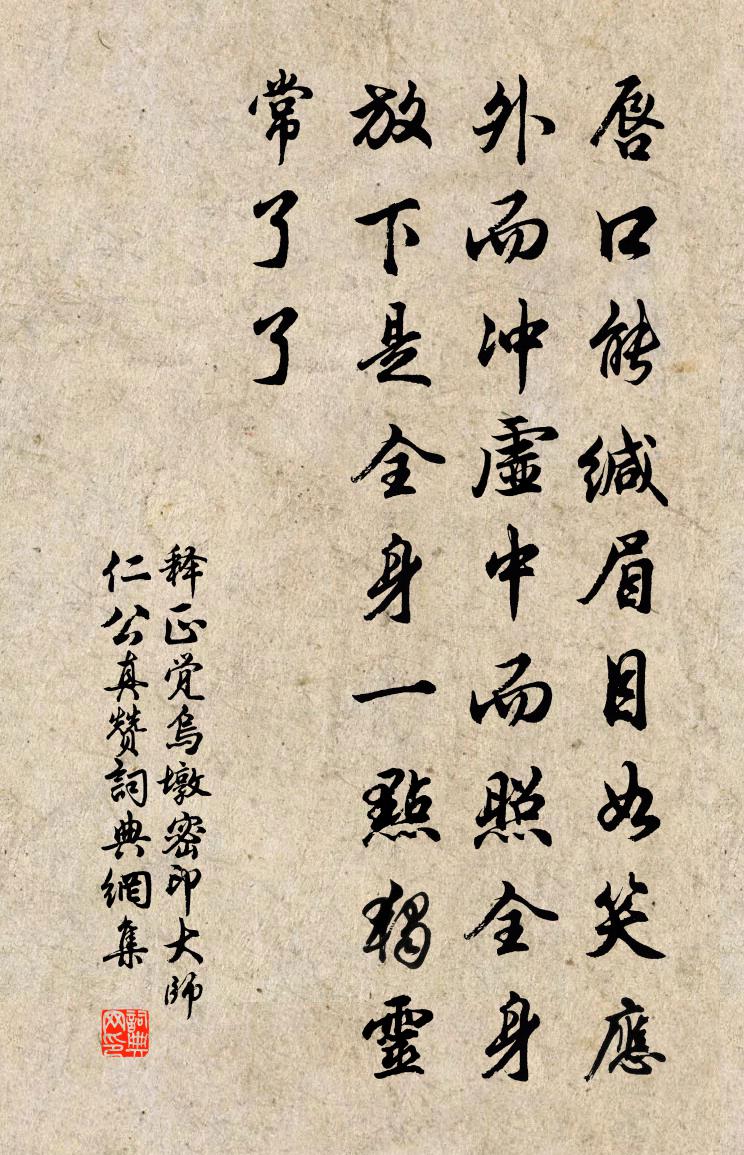 唇口能緘眉目如笑應
外而冲虛中而照全身
放下是全身一點獨靈
常了了
释正觉烏墩密印大師
仁公真赞詞典網集
詞典网印